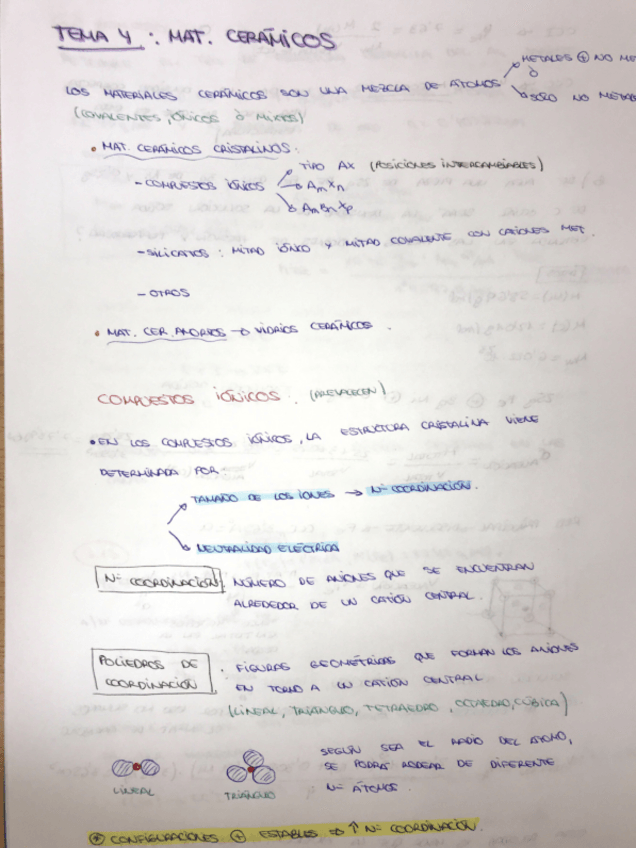 TEMA 4 : MAT. CERÁMICOS
METALES ⊕ NO ME
Ó
LOS MATERIALES CERÁMICOS SON UNA MEZCLA DE ÁTOMOS
SÓLO NO METAL
(COVALENTES, IÓNICOS Ó MIXTOS)
• MAT. CERÁMICOS CRISTALINOS:
TIPO AX (POSICIONES INTERCAMBIABLES)
- COMPUESTOS IÓNICOS
AmXn
AmBnXp
- SILICATOS : MITAD IÓNICO Y MITAD COVALENTE CON CATIONES MET.
- OTROS
• MAT. CER. AMORFOS → VIDRIOS CERÁMICOS.
COMPUESTOS IÓNICOS: (PREVALECEN)
• EN LOS COMPUESTOS IÓNICOS, LA ESTRUCTURA CRISTALINA VIENE
DETERMINADA POR
TAMAÑO DE LOS IONES → Nº COORDINACIÓN.
NEUTRALIDAD ELÉCTRICA
Nº COORDINACIÓN: NÚMERO DE ANIONES QUE SE ENCUENTRAN
ALREDEDOR DE UN CATIÓN CENTRAL.
POLIEDROS DE COORDINACIÓN: FIGURAS GEOMÉTRICAS QUE FORMAN LOS ANIONES
EN TORNO A UN CATIÓN CENTRAL
(LINEAL, TRIÁNGULO, TETRAEDRO, OCTAEDRO, CÚBICA)
SEGÚN SEA EL RADIO DEL ÁTOMO,
SE PODRÁ RODEAR DE DIFERENTE
Nº ÁTOMOS.
LINEAL
TRIÁNGULO
* CONFIGURACIONES ⊕ ESTABLES ⇒ ↑ Nº COORDINACIÓN.